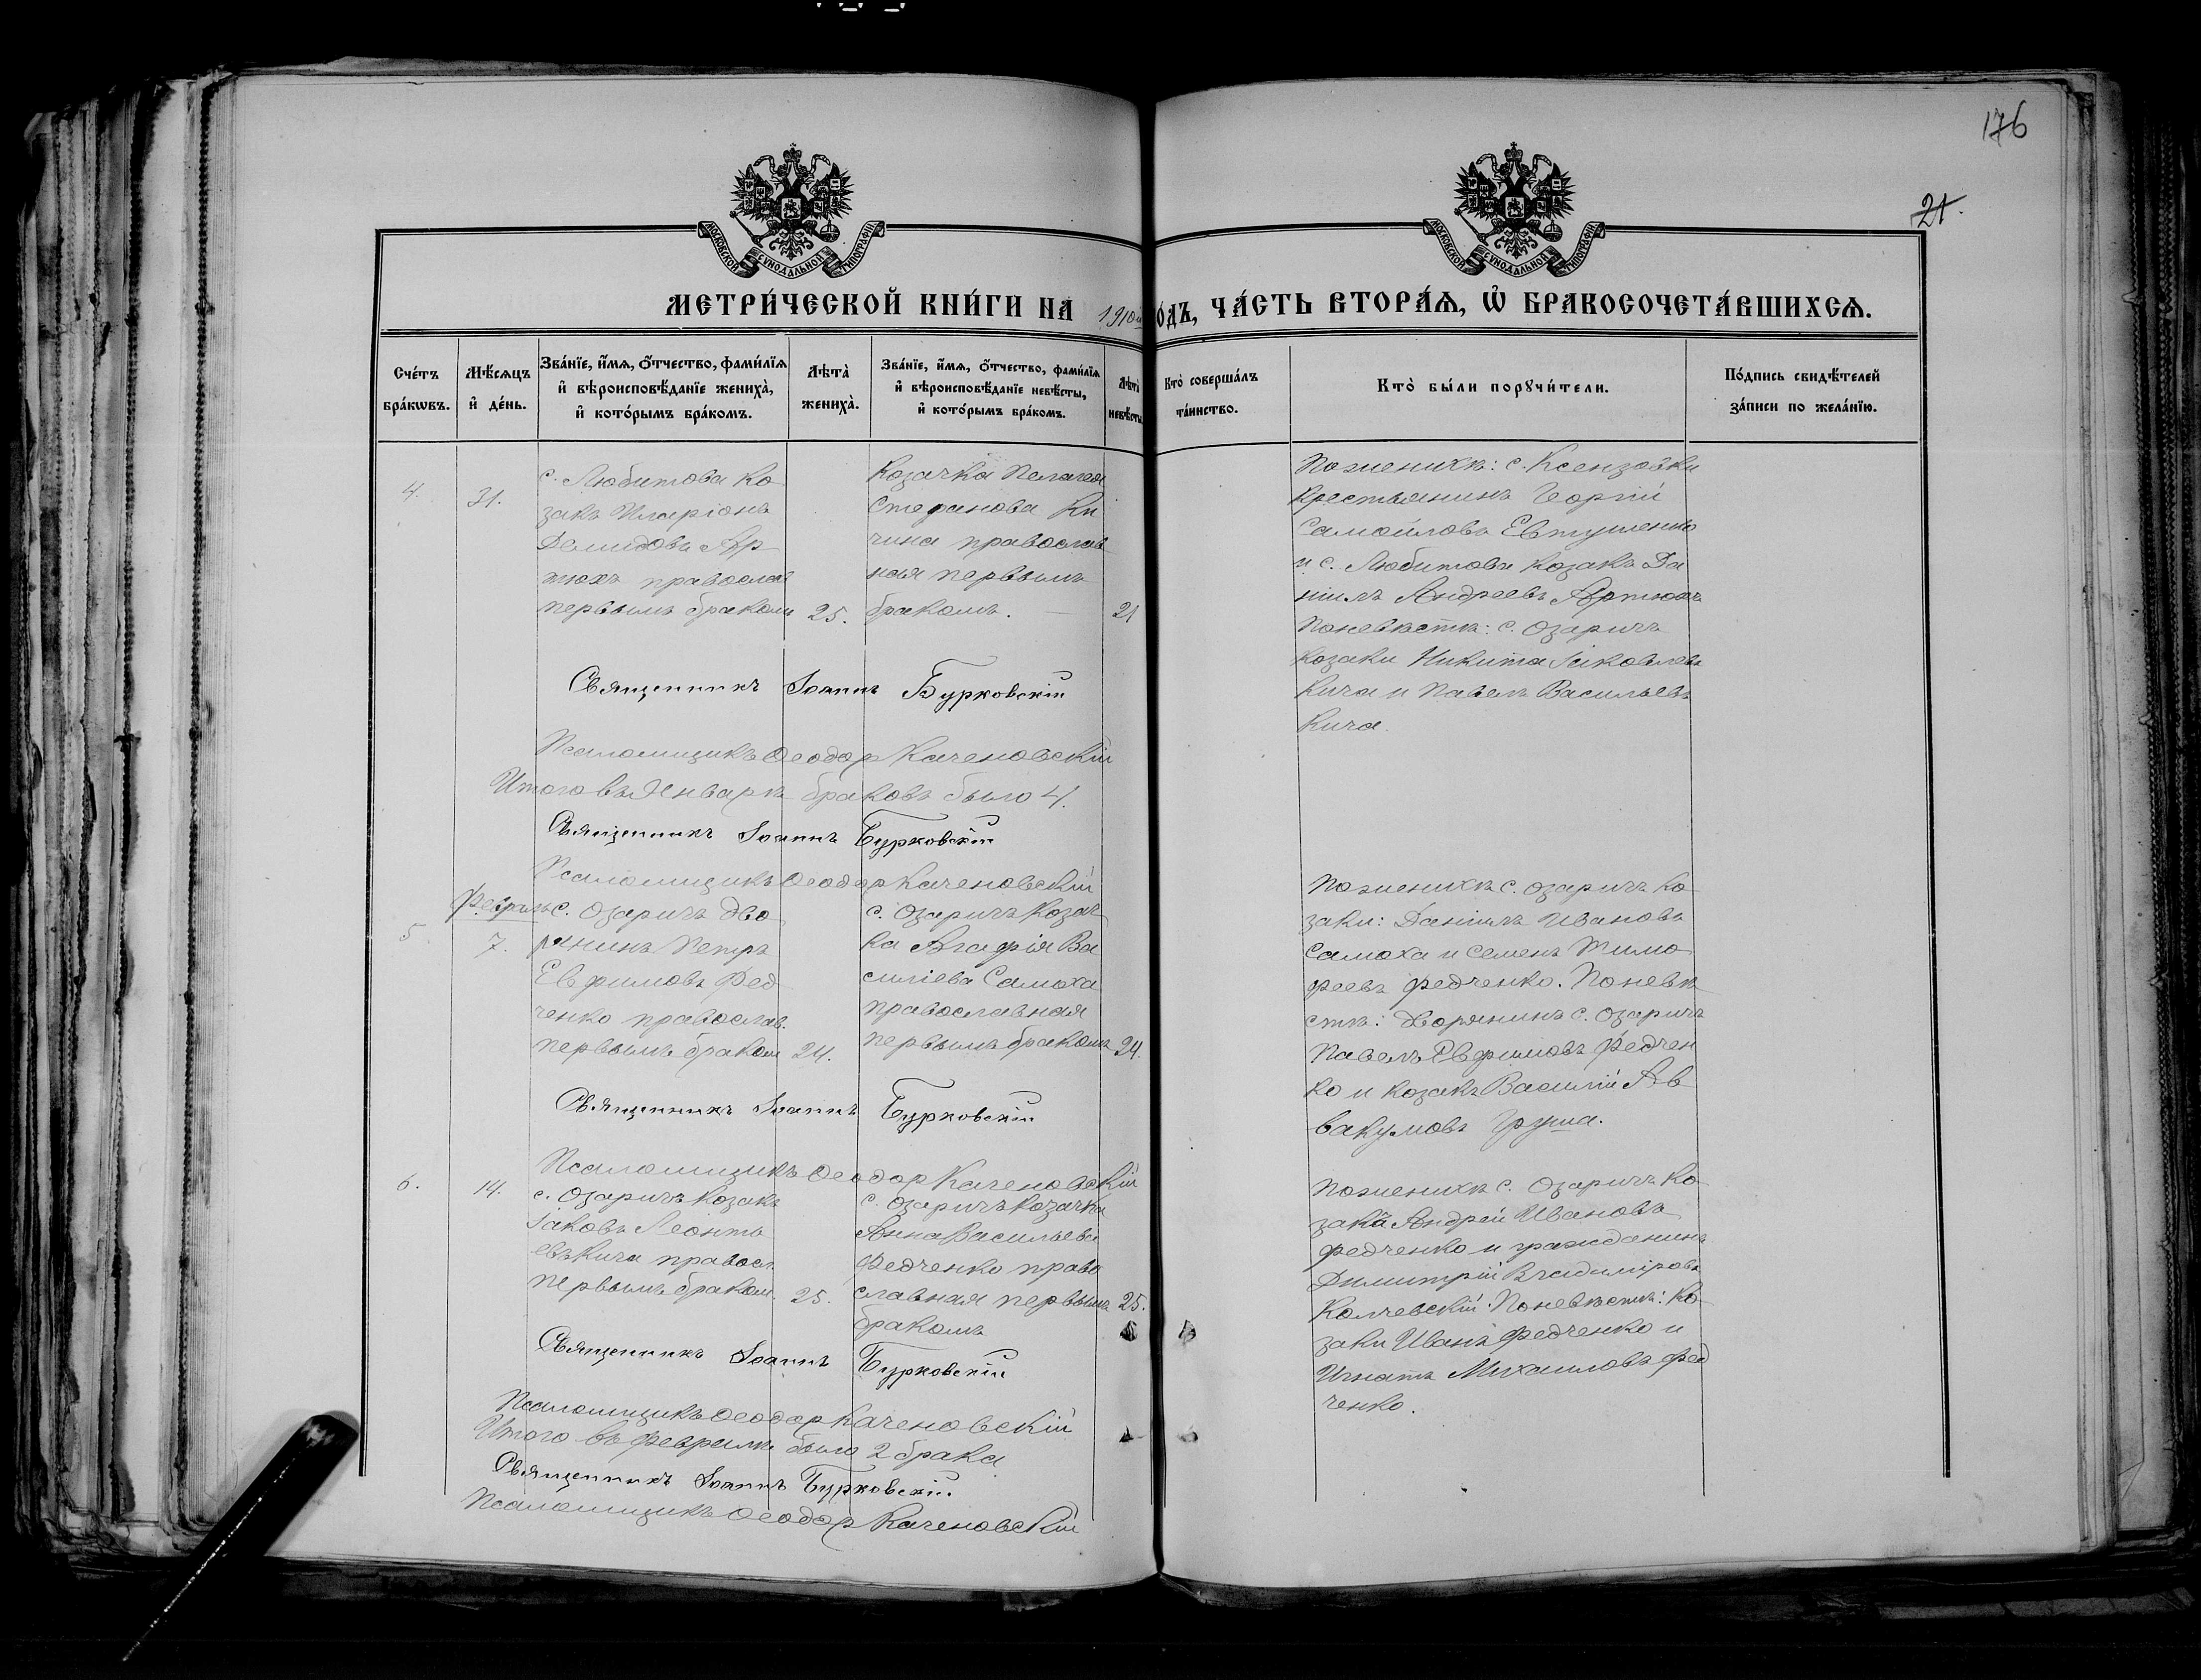 176
21.
МОСКОВСКОЙ СѴНОДАЛЬНОЙ ТИПОГРАФІИ
МОСКОВСКОЙ СѴНОДАЛЬНОЙ ТИПОГРАФІИ
МЕТРИ́ЧЕСКОЙ КНИ́ГИ НА 1910й
О́ДЪ, ЧА́СТЬ ВТОРА́Ѧ, Ѡ҆ БРАКОСОЧЕТА́ВШИХСѦ.
Сче́тъ бра́кωвъ.
Мѣ́сѧцъ и҆ де́нь.
Зва́нїе, и҆́мѧ, ѻ҆́тчество, фами́лїѧ
и҆ вѣроисповѣ́данїе жениха̀,
и҆ кото́рымъ бра́комъ.
Лѣта̀ жениха̀.
Зва́нїе, и҆́мѧ, ѻ҆́тчество, фами́лїѧ
и҆ вѣроисповѣ́данїе невѣ́сты,
и҆ кото́рымъ бра́комъ.
Лѣта̀ невѣ́сты
Кто̀ соверша́лъ та́инство.
Кто̀ бы́ли порꙋчи́тели.
По́дпись свидѣ́телей
за́писи по жела́нїю.
4.
31.
с. Любитова ко
закъ Иларіонъ
Демидовъ Ар
тюхъ православ
первымъ браком
25.
Козачка Пелагея
Стефанова Ки
чина православ
ная первымъ
бракомъ.
21
По женихѣ: с. Ксензовки
крестьянинъ Георгій
Самойловъ Евтушенко
и с. Любитова козакъ Да
ніилъ Андреевъ Артюхъ
По невѣстѣ: с. Озаричъ
козаки Никита Іаковлевъ
Кича и Павелъ Васильевъ
Кича.
Священникъ Іоаннъ Бурковскій
Псаломщикъ Ѳеодор Каченовскій
Итого въ Январѣ браковъ было 4.
Священникъ Іоаннъ Бурковскій
Псаломщикъ Ѳеодор Каченовскій
Февраль
5
7.
с. Озаричъ дво
рянинъ Петръ
Евфимовъ Фед
ченко православ.
первымъ браком
24.
с. Озаричъ козач
ка Агафія Ва
силіева Самоха
православная
первымъ бракомъ
24.
По женихѣ с. Озаричъ ко
заки: Даніилъ Ивановъ
Самоха и Семенъ Тимо
феевъ Федченко. По невѣ
стѣ: Дворянинъ с. Озаричъ
Павелъ Евфимовъ Федчен
ко и козакъ Василій Ав
вакумовъ Груша.
Священникъ Іоаннъ Бурковскій
Псаломщикъ Ѳеодор Каченовскій
6.
14.
с. Озаричъ козакъ
Іаковъ Леонть
евъ Кича правосл.
первымъ браком.
25.
с. Озаричъ козачка
Анна Васильева
Федченко право
славная первымъ
бракомъ
25.
По женихѣ с. Озаричъ ко
закъ Андрей Ивановъ
Федченко и гражданинъ
Димитрій Владиміровъ
Колчевскій. По невѣстѣ: ко
заки Иванъ Федченко и
Игнатъ Михаиловъ Фед
ченко.
Священникъ Іоаннъ Бурковскій
Псаломщикъ Ѳеодор Каченовскій
Итого въ Февралѣ было 2 брака
Священникъ Іоаннъ Бурковскій.
Псаломщикъ Ѳеодор Каченовскій